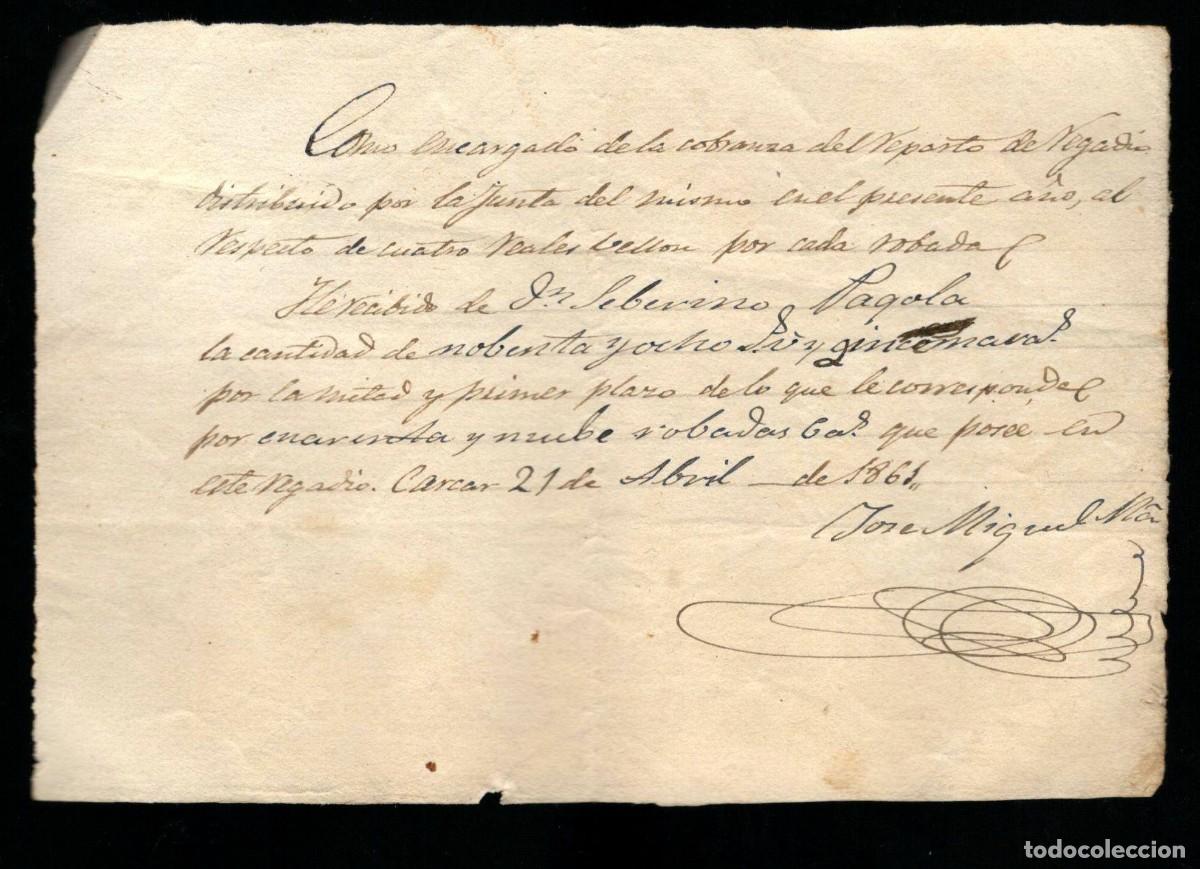 Como encargado de la cobranza del reparto de Regadio
distribuido por la Junta del mismo en el presente año, al
respecto de cuatro reales vellon por cada robada
He recibido de Dn Seberino Pagola
la cantidad de nobenta y ocho y
por la mitad y primer plazo de lo que le corresponde
por cuarenta y nuebe robadas que posee en
este regadio. Carcar 21 de Abril de 1861
Jose Miguel
todocoleccion